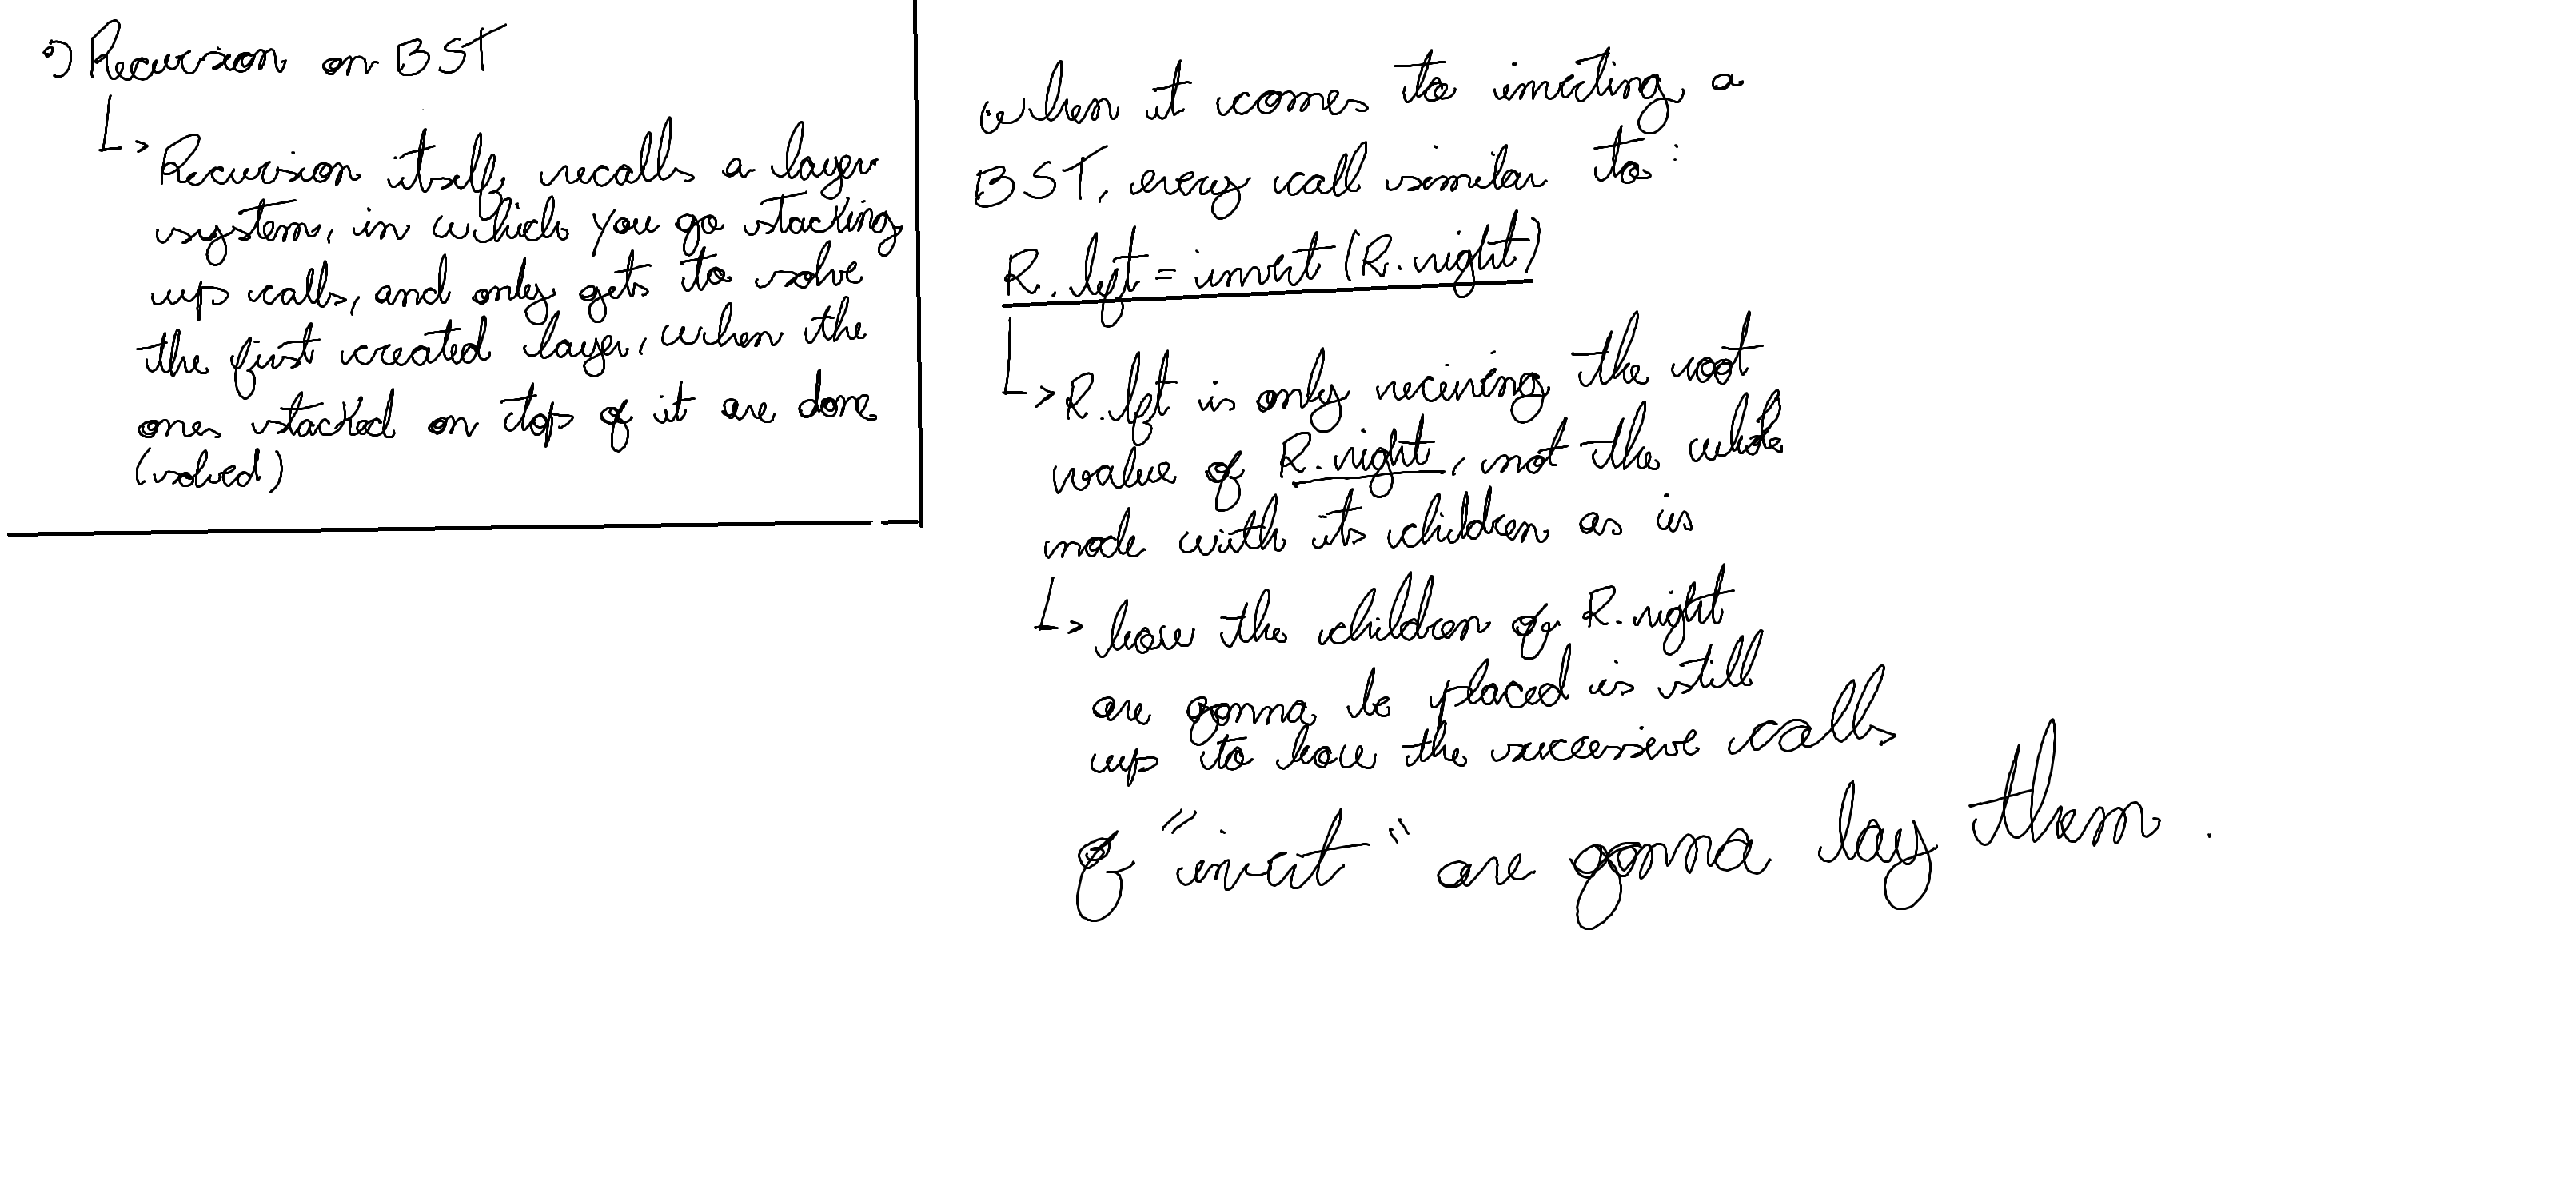 Recursion on BST
Recursion itself, recalls a layer
system, in which you go stacking
up calls, and only gets to solve
the first created layer, when the
ones stacked on top of it are done
(solved)
when it comes to inverting a
BST, every call similar to:
R.left = invert (R.right)
R.left is only receiving the root
value of R.right, not the whole
node with its children as is
how the children of R.right
are gonna be placed is still
up to how the successive calls
of "invert" are gonna lay them.